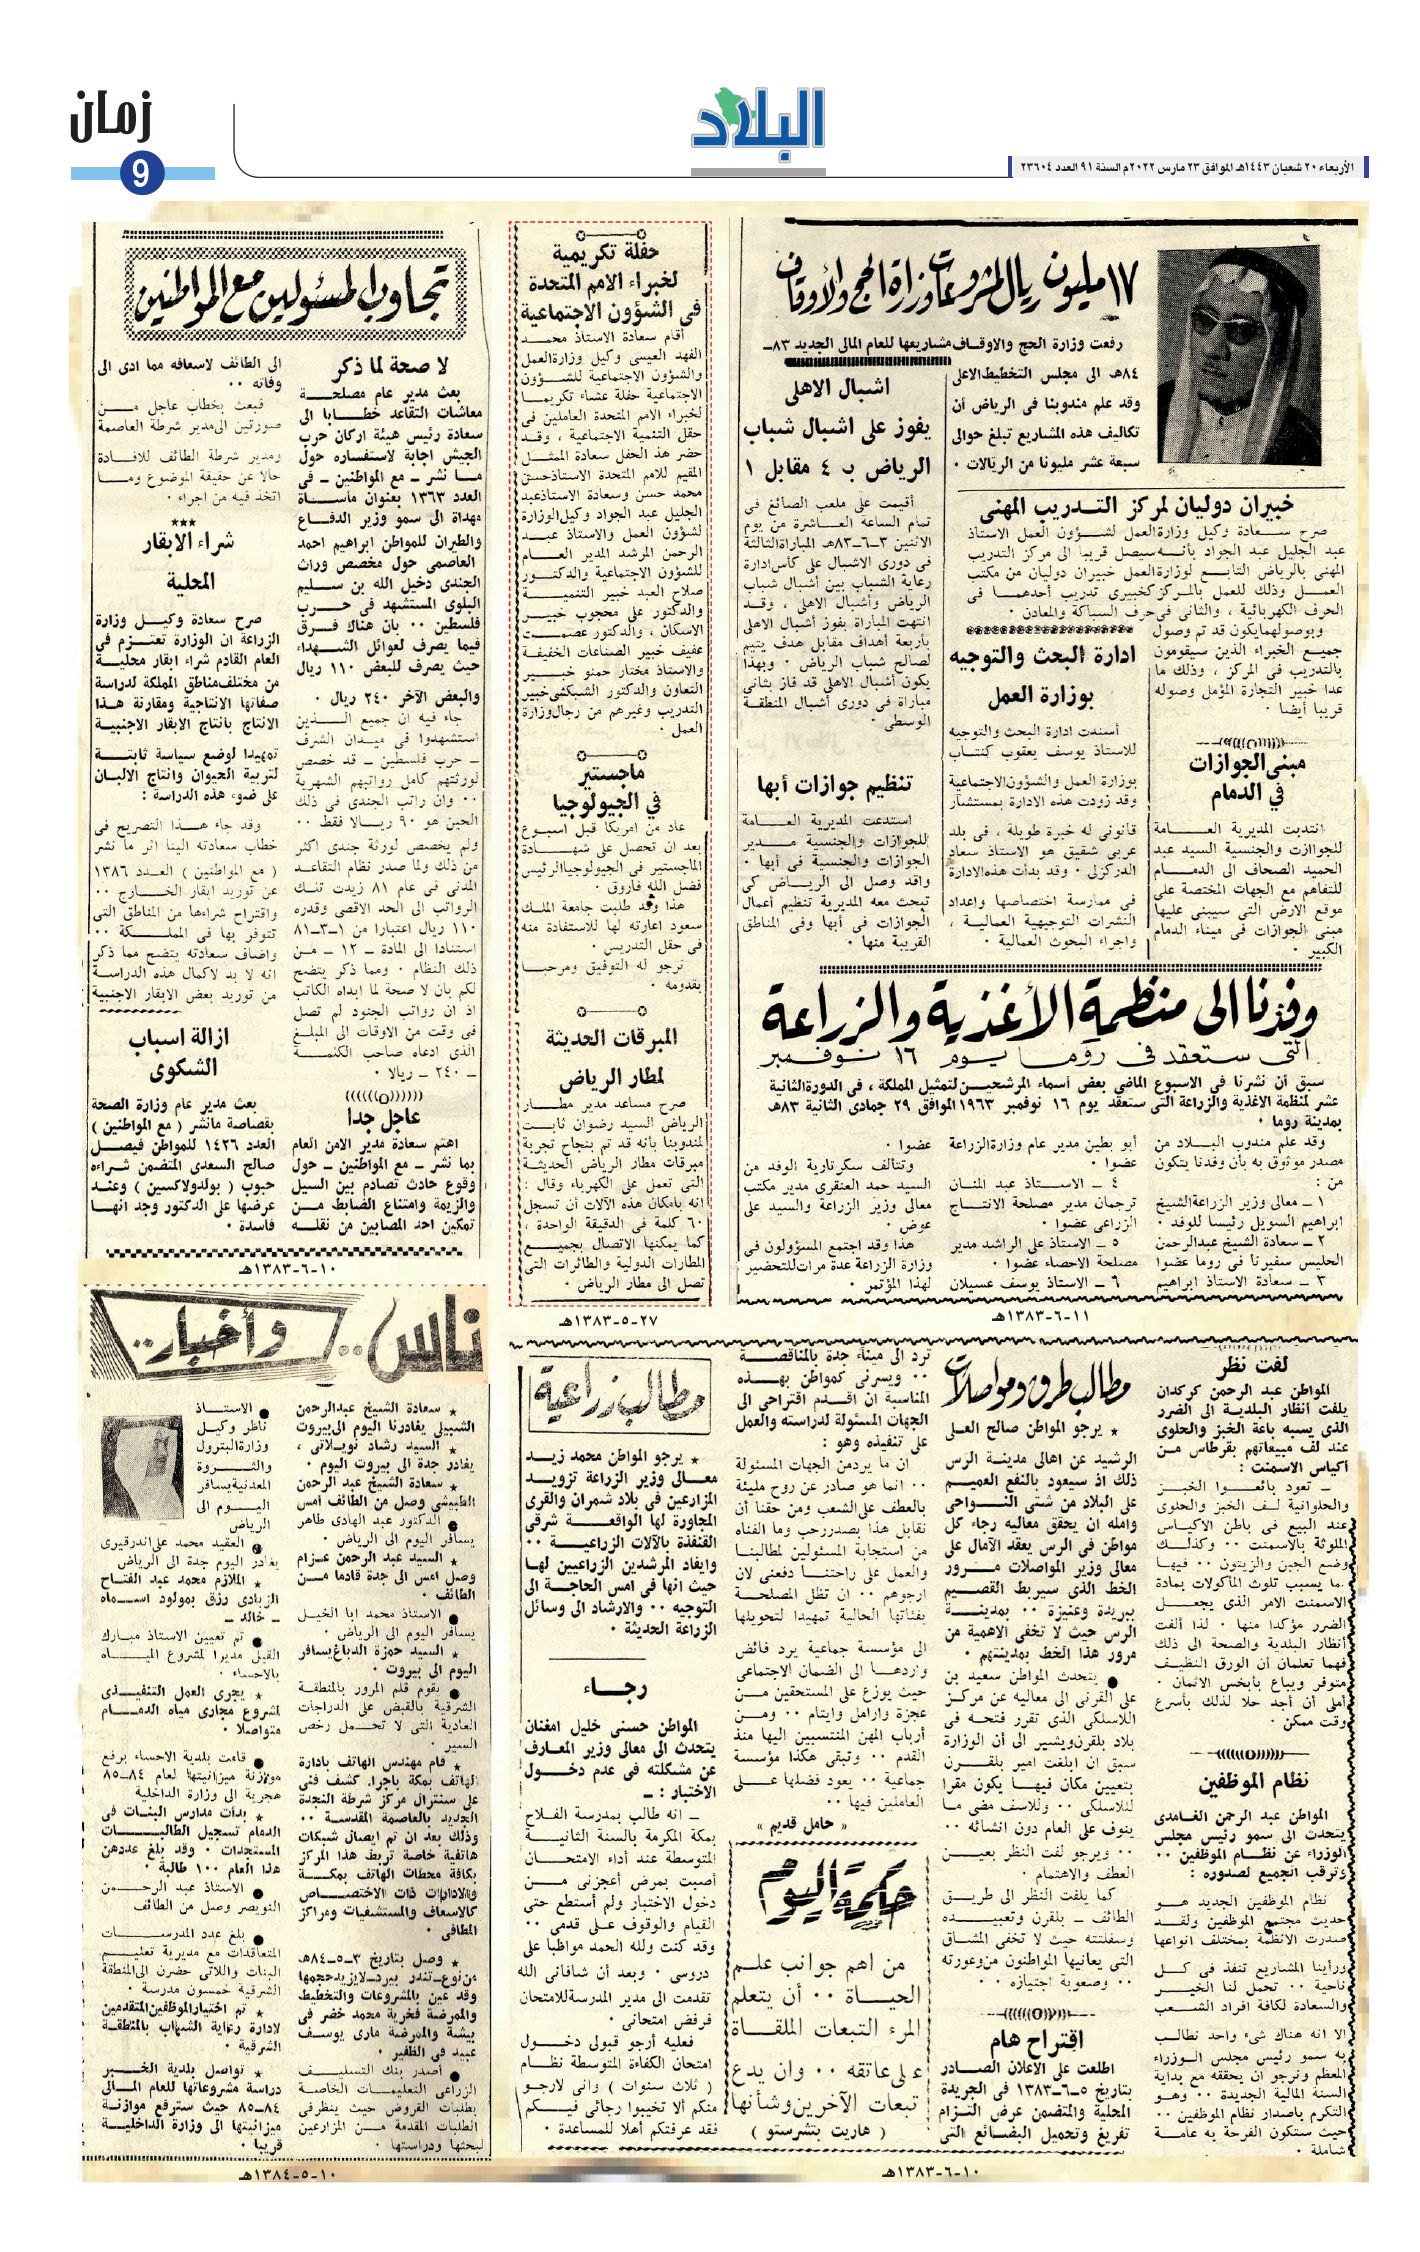 زمان
9
البلاد
الأربعاء ٢٠ شعبان ١٤٤٣هـ الموافق ٢٣ مارس ٢٠٢٢م السنة ٩١ العدد ٢٣٦٠٤
١٧ مليون ريال لمشروعات وزارة الحج والأوقاف
رفعت وزارة الحج والاوقاف مشاريعها للعام المالى الجديد ٨٣ــ
٨٤هـ الى مجلس التخطيط الاعلى
وقد علم مندوبنا فى الرياض أن
تكاليف هذه المشاريع تبلغ حوالى
سبعة عشر مليونا من الريالات ٠
خبيران دوليان لمركز التدريب المهنى
صرح سعادة وكيل وزارة العمل لشؤون العمل الاستاذ
عبد الجليل عبد الجواد بأنه سيصل قريبا الى مركز التدريب
المهنى بالرياض التابع لوزارة العمل خبيران دوليان من مكتب
العمل وذلك للعمل بالمركز كخبيرى تدريب أحدهما فى
الحرف الكهربائية ، والثانى فى حرف السباكة والمعادن ٠
وبوصولهما يكون قد تم وصول
جميع الخبراء الذين سيقومون
بالتدريب فى المركز ، وذلك ما
عدا خبير التجارة المؤمل وصوله
قريبا أيضا ٠
مبنى الجوازات
في الدمام
انتدبت المديرية العامة
للجوازت والجنسية السيد عبد
الحميد الصحاف الى الدمام
للتفاهم مع الجهات المختصة على
موقع الارض التى سيبنى عليها
مبنى الجوازات فى ميناء الدمام
الكبير ٠
ادارة البحث والتوجيه
بوزارة العمل
أسندت ادارة البحث والتوجيه
للاستاذ يوسف يعقوب كنتاب
بوزارة العمل والشؤون الاجتماعية
وقد زودت هذه الادارة بمستشار
قانونى له خبرة طويلة ، فى بلد
عربى شقيق هو الاستاذ سعاد
الدركزلى ٠ وقد بدأت هذه الادارة
فى ممارسة اختصاصها واعداد
النشرات التوجيهية العمالية ،
واجراء البحوث العمالية ٠
اشبال الاهلى
يفوز على اشبال شباب
الرياض بـ ٤ مقابل ١
أقيمت على ملعب الصائغ فى
تمام الساعة العاشرة من يوم
الاثنين ٣ــ٦ــ٨٣هـ المباراة الثالثة
فى دورى الاشبال على كأس ادارة
رعاية الشباب بين أشبال شباب
الرياض وأشبال الاهلى ، وقد
انتهت المباراة بفوز أشبال الاهلى
باربعة أهداف مقابل هدف يتيم
لصالح شباب الرياض ٠ وبهذا
يكون أشبال الاهلى قد فاز بثانى
مباراة فى دورى أشبال المنطقة
الوسطى ٠
تنظيم جوازات أبها
استدعت المديرية العامة
للجوازات والجنسية مدير
الجوازات والجنسية فى أبها ٠
وقد وصل الى الرياض كى
تبحث معه المديرية تنظيم أعمال
الجوازات فى أبها وفى المناطق
القريبة منها ٠
وفدنا الى منظمة الأغذية والزراعة
التى ستعقد فى روما يوم ١٦ نوفمبر
سبق أن نشرنا فى الاسبوع الماضى بعض أسماء المرشحين لتمثيل المملكة ، فى الدورة الثانية
عشر لمنظمة الاغذية والزراعة التى ستعقد يوم ١٦ نوفمبر ١٩٦٣ الموافق ٢٩ جمادى الثانية ٨٣هـ
بمدينة روما ٠
وقد علم مندوب البلاد من
مصدر موثوق به بأن وفدنا يتكون
من :
١ ــ معالى وزير الزراعة الشيخ
ابراهيم السويل رئيسا للوفد ٠
٢ ــ سعادة الشيخ عبد الرحمن
الحليس سفيرنا فى روما عضوا
٣ ــ سعادة الاستاذ ابراهيم
أبو بطين مدير عام وزارة الزراعة
عضوا ٠
٤ ــ الاستاذ عبد المنان
ترجمان مدير مصلحة الانتاج
الزراعى عضوا ٠
٥ ــ الاستاذ على الراشد مدير
مصلحة الاحصاء عضوا ٠
٦ ــ الاستاذ يوسف عسيلان
عضوا ٠
وتتألف سكرتارية الوفد من
السيد حمد العنقرى مدير مكتب
معالى وزير الزراعة والسيد على
عوض ٠
هذا وقد اجتمع المسؤولون فى
وزارة الزراعة عدة مرات للتحضير
لهذا المؤتمر ٠
١١-٦-١٣٨٣هـ
حفلة تكريمية
لخبراء الامم المتحدة
فى الشؤون الاجتماعية
أقام سعادة الاستاذ محمد
الفهد العيسى وكيل وزارة العمل
والشؤون الاجتماعية للشؤون
الاجتماعية حفلة عشاء تكريما
لخبراء الامم المتحدة العاملين فى
حقل التنمية الاجتماعية ، وقد
حضر هذا الحفل سعادة الممثل
المقيم للامم المتحدة الاستاذ حسن
محمد حسن وسعادة الاستاذ عبد
الجليل عبد الجواد وكيل الوزارة
لشؤون العمل والاستاذ عبد
الرحمن المرشد المدير العام
للشؤون الاجتماعية والدكتور
صلاح العبد خبير التنمية
والدكتور على محجوب خبير
الاسكان ، والدكتور عصمت
عفيف خبير الصناعات الخفيفة
والاستاذ مختار حمنو خبير
التعاون والدكتور الشبكشى خبير
التدريب وغيرهم من رجال وزارة
العمل ٠
ماجستير
في الجيولوجيا
عاد من امريكا قبل اسبوع
بعد ان تحصل على شهادة
الماجستير فى الجيولوجيا الرئيس
فضل الله فاروق ٠
هذا وقد طلبت جامعة الملك
سعود اعارته لها للاستفادة منه
فى حقل التدريس ٠
نرجو له التوفيق ومرحبا
بقدومه ٠
المبرقات الحديثة
لمطار الرياض
صرح مساعد مدير مطار
الرياض السيد رضوان ثابت
لمندوبنا بأنه قد تم بنجاح تجربة
مبرقات مطار الرياض الحديثة
التى تعمل على الكهرباء وقال :
انه بامكان هذه الآلات أن تسجل
٦٠ كلمة فى الدقيقة الواحدة ،
كما يمكنها الاتصال بجميع
المطارات الدولية والطائرات التى
تصل الى مطار الرياض ٠
٢٧-٥-١٣٨٣هـ
تجاوب المسئولين مع المواطنين
لا صحة لما ذكر
بعث مدير عام مصلحة
معاشات التقاعد خطابا الى
سعادة رئيس هيئة اركان حرب
الجيش اجابة لاستفساره حول
ما نشر ــ مع المواطنين ــ فى
العدد ١٣٦٣ بعنوان مأساة
مهداة الى سمو وزير الدفاع
والطيران للمواطن ابراهيم احمد
العاصمى حول مخصص وراث
الجندى دخيل الله بن سليم
البلوى المستشهد فى حرب
فلسطين ٠٠ بان هناك فرق
فيما يصرف لعوائل الشهداء
حيث يصرف للبعض ١١٠ ريال
والبعض الآخر ٢٤٠ ريال ٠
جاء فيه ان جميع الذين
استشهدوا فى ميدان الشرف
ــ حرب فلسطين ــ قد خصص
لورثتهم كامل رواتبهم الشهرية
٠٠ وان راتب الجندى فى ذلك
الحين هو ٩٠ ريالا فقط ٠٠
ولم يخصص لورثة جندى اكثر
من ذلك ولما صدر نظام التقاعد
المدنى فى عام ٨١ زيدت تلك
الرواتب الى الحد الاقصى وقدره
١١٠ ريال اعتبارا من ١ــ٣ــ٨١
استنادا الى المادة ــ ١٢ ــ من
ذلك النظام ٠ ومما ذكر يتضح
لكم بان لا صحة لما ابداه الكاتب
اذ ان رواتب الجنود لم تصل
فى وقت من الاوقات الى المبلغ
الذى ادعاه صاحب الكلمة
ــ ٢٤٠ ــ ريالا ٠
عاجل جدا
اهتم سعادة مدير الامن العام
بما نشر ــ مع المواطنين ــ حول
وقوع حادث تصادم بين السيل
والزيمة وامتناع الضابط من
تمكين احد المصابين من نقله
الى الطائف لاسعافه مما ادى الى
وفاته ٠٠
فبعث بخطاب عاجل من
صورتين الى مدير شرطة العاصمة
ومدير شرطة الطائف للافادة
حالا عن حقيقة الموضوع وما
اتخذ فيه من اجراء ٠
شراء الابقار
المحلية
صرح سعادة وكيل وزارة
الزراعة ان الوزارة تعتزم فى
العام القادم شراء ابقار محلية
من مختلف مناطق المملكة لدراسة
صفاتها الانتاجية ومقارنة هذا
الانتاج بانتاج الابقار الاجنبية
تمهيدا لوضع سياسة ثابتة
لتربية الحيوان وانتاج الالبان
على ضوء هذه الدراسة :
وقد جاء هذا التصريح فى
خطاب سعادته الينا اثر ما نشر
( مع المواطنين ) العدد ١٣٨٦
عن توريد ابقار الخارج ٠٠
واقتراح شراءها من المناطق التى
تتوفر بها فى المملكة ٠٠
واضاف سعادته يتضح مما ذكر
انه لا بد لاكمال هذه الدراسة
من توريد بعض الابقار الاجنبية
ازالة اسباب
الشكوى
بعث مدير عام وزارة الصحة
بقصاصة مانشر ( مع المواطنين )
العدد ١٤٢٦ للمواطن فيصل
صالح السعدى المتضمن شراءه
حبوب ( بولدولاكسين ) وعند
عرضها على الدكتور وجد انها
فاسدة ٠
١٠-٦-١٣٨٣هـ
ناس .. وأخبار ..
٭ سعادة الشيخ عبدالرحمن
الشبيلى يغادرنا اليوم الى بيروت
٭ السيد رشاد نويلاتى ،
يغادر جدة الى بيروت اليوم ٠
٭ سعادة الشيخ عبد الرحمن
الطبيشى وصل من الطائف أمس
● الدكتور عبد الهادى طاهر
يسافر اليوم الى الرياض ٠
٭ السيد عبد الرحمن عزام
وصل امس الى جدة قادما من
الطائف ٠
● الاستاذ محمد ابا الخيل
يسافر اليوم الى الرياض ٠
٭ السيد حمزة الدباغ يسافر
اليوم الى بيروت ٠
● يقوم قلم المرور بالمنطقة
الشرقية بالقبض على الدراجات
العادية التى لا تحمل رخص
السير ٠
٭ قام مهندس الهاتف بادارة
الهاتف بمكة باجراء كشف فنى
على سنترال مركز شرطة النجدة
الجديد بالعاصمة المقدسة ٠٠
وذلك بعد ان تم ايصال شبكات
هاتفية خاصة تربط هذا المركز
بكافة محطات الهاتف بمكة
والادارات ذات الاختصاص
كالاسعاف والمستشفيات ومراكز
المطافى ٠
٭ وصل بتاريخ ٣ــ٥ــ٨٤هـ
وقد عين بالمشروعات والتخطيط
والممرضة فخرية محمد خضر فى
بيشة والممرضة مارى يوسف
عبيد فى الظفير ٠
● أصدر بنك التسليف
الزراعى التعليمات الخاصة
بطلبات القروض حيث ينظر فى
الطلبات المقدمة من المزارعين
لبحثها ودراستها ٠
● الاستاذ
ناظر وكيل
وزارة البترول
والثروة
المعدنية يسافر
اليوم الى
الرياض
● العقيد محمد على اندرقيرى
يغادر اليوم جدة الى الرياض
٭ الملازم محمد عبد الفتاح
الزيادى رزق بمولود اسماه
ــ خالد ــ
● تم تعيين الاستاذ مبارك
القيل مديرا لمشروع المياه
بالاحساء ٠
٭ يجرى العمل التنفيذى
لمشروع مجارى مياه الدمام
متواصلا ٠
● قامت بلدية الاحساء برفع
موازنة ميزانيتها لعام ٨٤ــ٨٥
هجرية الى وزارة الداخلية
٭ بدأت مدارس البنات فى
الدمام تسجيل الطالبات
المستجدات ٠ وقد بلغ عددهن
هذا العام ١٠٠ طالبة ٠
● الاستاذ عبد الرحمن
النويصر وصل من الطائف
● بلغ عدد المدرسات
المتعاقدات مع مديرية تعليم
البنات واللاتى حضرن الى المنطقة
الشرقية خمسون مدرسة ٠
٭ تم اختيار الموظفين المتقدمين
لادارة رعاية الشباب بالمنطقة
الشرقية ٠
٭ تواصل بلدية الخبر
دراسة مشروعاتها للعام المالى
٨٤ــ٨٥ حيث سترفع موازنة
ميزانيتها الى وزارة الداخلية
قريبا ٠
١٠-٥-١٣٨٤هـ
لفت نظر
المواطن عبد الرحمن كركدان
يلفت أنظار البلدية الى الضرر
الذى يسببه باعة الخبز والحلوى
عند لف مبيعاتهم بقرطاس من
أكياس الاسمنت :
ــ تعود بائعوا الخبز
والحلوانية لف الخبز والحلوى
عند البيع فى باطن الاكياس
الملوثة بالاسمنت ٠٠ وكذلك
وضع الجبن والزيتون ٠٠ فيها
مما يسبب تلوث المأكولات بمادة
الاسمنت الامر الذى يجعل
الضرر مؤكدا منها ٠ لذا ألفت
أنظار البلدية والصحة الى ذلك
فهما تعلمان أن الورق النظيف
متوفر ويباع بأبخس الاثمان ٠
أملى أن أجد حلا لذلك بأسرع
وقت ممكن ٠
نظام الموظفين
المواطن عبد الرحمن الغامدى
يتحدث الى سمو رئيس مجلس
الوزراء عن نظام الموظفين ٠٠
وترقب الجميع لصدوره :
نظام الموظفين الجديد هو
حديث مجتمع الموظفين ولقد
صدرت الانظمة بمختلف انواعها
ورأينا المشاريع تنفذ فى كل
ناحية ٠٠ تحمل لنا الخير
والسعادة لكافة افراد الشعب
الا انه هناك شىء واحد نطالب
به سمو رئيس مجلس الوزراء
المعظم ونرجو ان يحققه مع بداية
السنة المالية الجديدة ٠٠ وهو
التكرم باصدار نظام الموظفين ٠٠
حيث ستكون الفرحة به عامة
شاملة ٠
مطالب طرق ومواصلات
٭ يرجو المواطن صالح العلى
الرشيد عن اهالى مدينة الرس
ذلك اذ سيعود بالنفع العميم
على البلاد من شتى النواحى
وامله ان يحقق معاليه رجاء كل
مواطن فى الرس بعقد الآمال على
معالى وزير المواصلات مرور
الخط الذى سيربط القصيم
ببريدة وعنيزة ٠٠ بمدينة
الرس حيث لا تخفى الاهمية من
مرور هذا الخط بمدينتهم ٠
● يتحدث المواطن سعيد بن
على القرنى الى معاليه عن مركز
اللاسلكى الذى تقرر فتحه فى
بلاد بلقرن ويشير الى أن الوزارة
سبق ان ابلغت امير بلقرن
بتعيين مكان فيها يكون مقرا
للاسلكى ٠٠ وللاسف مضى ما
ينوف على العام دون انشائه ٠٠
٠٠ ويرجو لفت النظر بعين
العطف والاهتمام ٠
كما يلفت النظر الى طريق
الطائف ــ بلقرن وتعبيده
وسفلتته حيث لا تخفى المشاق
التى يعانيها المواطنون من وعورته
٠٠ وصعوبة اجتيازه ٠٠
اقتراح هام
اطلعت على الاعلان الصادر
بتاريخ ٥ــ٦ــ١٣٨٣ فى الجريدة
المحلية والمتضمن عرض التزام
تفريغ وتحميل البضائع التى
ترد الى ميناء جدة بالمناقصة
٠٠ ويسرنى كمواطن بهذه
المناسبة ان اقدم اقتراحى الى
الجهات المسئولة لدراسته والعمل
على تنفيذه وهو :
ان ما يرد من الجهات المسئولة
٠٠ انما هو صادر عن روح مليئة
بالعطف على الشعب ومن حقنا أن
نقابل هذا بصدر رحب وما الفناه
من استجابة المسئولين لمطالبنا
والعمل على راحتنا دفعنى لان
ارجوهم ٠٠ ان تظل المصلحة
بفئاتها الحالية تمهيدا لتحويلها
الى مؤسسة جماعية يرد فائض
واردها الى الضمان الاجتماعى
حيث يوزع على المستحقين من
عجزة وارامل وايتام ٠٠ ومن
أرباب المهن المنتسبين اليها منذ
القدم ٠٠ وتبقى هكذا مؤسسة
جماعية ٠٠ يعود فضلها على
العاملين فيها ٠٠
« حامل قديم »
حكمة اليوم
من اهم جوانب علم
الحياة ٠٠ أن يتعلم
المرء التبعات الملقاة
على عاتقه ٠٠ وان يدع
تبعات الآخرين وشأنها
( هاريت بتشرستو )
مطالب زراعية
٭ يرجو المواطن محمد زيد
معالى وزير الزراعة تزويد
المزارعين فى بلاد شمران والقرى
المجاورة لها الواقعة شرقى
القنفذة بالآلات الزراعية ٠٠
وايفاد المرشدين الزراعيين لها
حيث انها فى امس الحاجة الى
التوجيه ٠٠ والارشاد الى وسائل
الزراعة الحديثة ٠
رجاء
المواطن حسنى خليل امغنان
يتحدث الى معالى وزير المعارف
عن مشكلته فى عدم دخول
الاختبار : ــ
ــ انه طالب بمدرسة الفلاح
بمكة المكرمة بالسنة الثانية
المتوسطة عند أداء الامتحان
أصبت بمرض أعجزنى من
دخول الاختبار ولم أستطع حتى
القيام والوقوف على قدمى ٠٠
وقد كنت ولله الحمد مواظبا على
دروسى ٠ وبعد أن شافانى الله
تقدمت الى مدير المدرسة للامتحان
فرفض امتحانى ٠
فعليه أرجو قبولى دخول
امتحان الكفاءة المتوسطة نظام
( ثلاث سنوات ) وانى لارجو
منكم ألا تخيبوا رجائى فيكم
فقد عرفتكم أهلا للمساعدة ٠
١٠-٦-١٣٨٣هـ